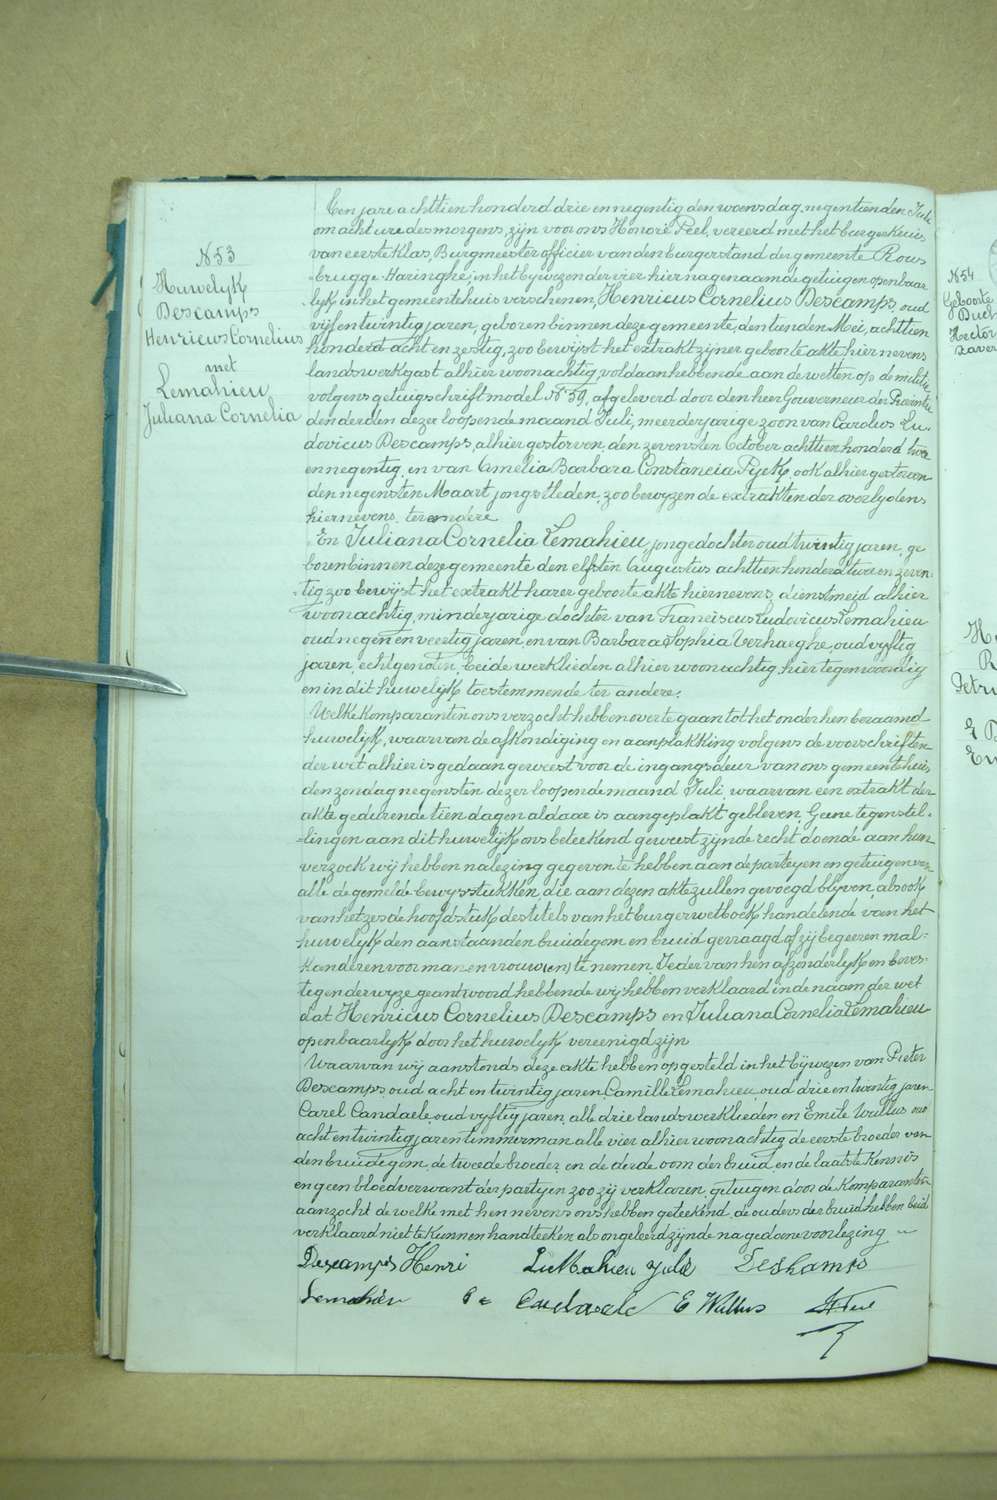 N 53
Huwelijk
Descamps
Henricus Cornelius
met
Lemahieu
Juliana Cornelia
Ten jare achttien honderd drie en negentig den woensdag negentienden Juli
om acht ure des morgens, zijn voor ons Honoré Peel, vereerd met het burgerkruis
van eerste klas, Burgmeester officier van den burgerstand der gemeente Rous
-brugge-Haringhe, in het bijwezen der vier hier nagenaamde getuigen openbaar
lijk in het gemeentehuis verschenen, Henricus Cornelius Descamps, oud
vijf en twintig jaren, geboren binnen deze gemeente, den tienden Mei, achttien
honderd acht en zestig, zoo bewijst het extrakt zijner geboorte akte hier nevens
landswerkgast alhier woonachtig, voldaan hebbende aan de wetten op de militie
volgens getuigschrift model N° 59, afgeleverd door den heer Gouverneur der Provintie
den derden dezer loopende maand Juli, meerderjarige zoon van Carolus Lu-
dovicus Descamps, alhier gestorven, den zevensten October achttien honderd twee
en negentig, en van Amelia Barbara Constancia Pyck, ook alhier gestorven
den negensten Maart jongstleden, zoo bewyzen de extrakten der overlydens
hiernevens, ter eendere
En Juliana Cornelia Lemahieu, jongedochter oud twintig jaren, ge
boren binnen deze gemeente den elfsten Augustus achttien honderd twee en zeven-
tig zoo bewijst het extrakt harer geboorte akte hiernevens, dienstmeid alhier
woonachtig, minderjarige dochter van Franciscus Ludovicus Lemahieu
oud negen en veertig jaren, en van Barbara Sophia Verhaeghe, oud vyftig
jaren, echtgenoten, beide werklieden alhier woonachtig, hier tegenwoordig
en in dit huwelijk toestemmende ter andere.
Welke komparanten ons verzocht hebben over te gaan tot het onder hen beraamd
huwelijk, waarvan de afkondiging en aanplakking volgens de voorschriften
der wet alhier is gedaan geweest voor de ingangsdeur van ons gemeentehuis,
den zondag negensten dezer loopende maand Juli, waarvan een extrakt der
akte gedurende tien dagen aldaar is aangeplakt gebleven. Geene tegenstel-
-lingen aan dit huwelijk ons beteekend geweest zijnde recht doende aan hun
verzoek wij hebben na lezing gegeven te hebben aan de partyen en getuigen van
alle de gemelde bewysstukken, die aan dezen akte zullen gevoegd blyven, alsook
van het zesde hoofdstuk des titels van het burgerwetboek handelende van het
huwelyk den aanstaanden bruidegom en bruid gevraagd of zij begeeren mal-
kanderen voor man en vrouw(en) te nemen. Ieder van hen afzonderlyk en beves-
tegenderwyze geantwoord hebbende wij hebben verklaard in de naam der wet
dat Henricus Cornelius Descamps en Juliana Cornelia Lemahieu
openbaarlyk door het huwelyk vereenigd zijn
Waarvan wij aanstonds deze akte hebben opgesteld in het bijwezen van Pieter
Descamps oud acht en twintig jaren, Camille Lemahieu oud drie en twintig jaren
Carel Candaele, oud vyftig jaren, alle drie landswerklieden en Emile Wullus oud
acht en twintig jaren timmerman alle vier alhier woonachtig de eerste broeder van
den bruidegom, de tweede broeder en de derde oom der bruid, en de laatste kennis
en geen bloedverwant der partyen zoo zij verklaren, getuigen door de komparanten
aanzocht de welke met hen nevens ons hebben geteekend, de ouders der bruid hebben beid
verklaard niet te kunnen handteeken als ongeleerd zijnde na gedane voorlezing
Descamps Henri LeMahieu Julie Deskamps
Lemahieu C Candaele E Wullus H Peel
N 54
Geboorte
Hector